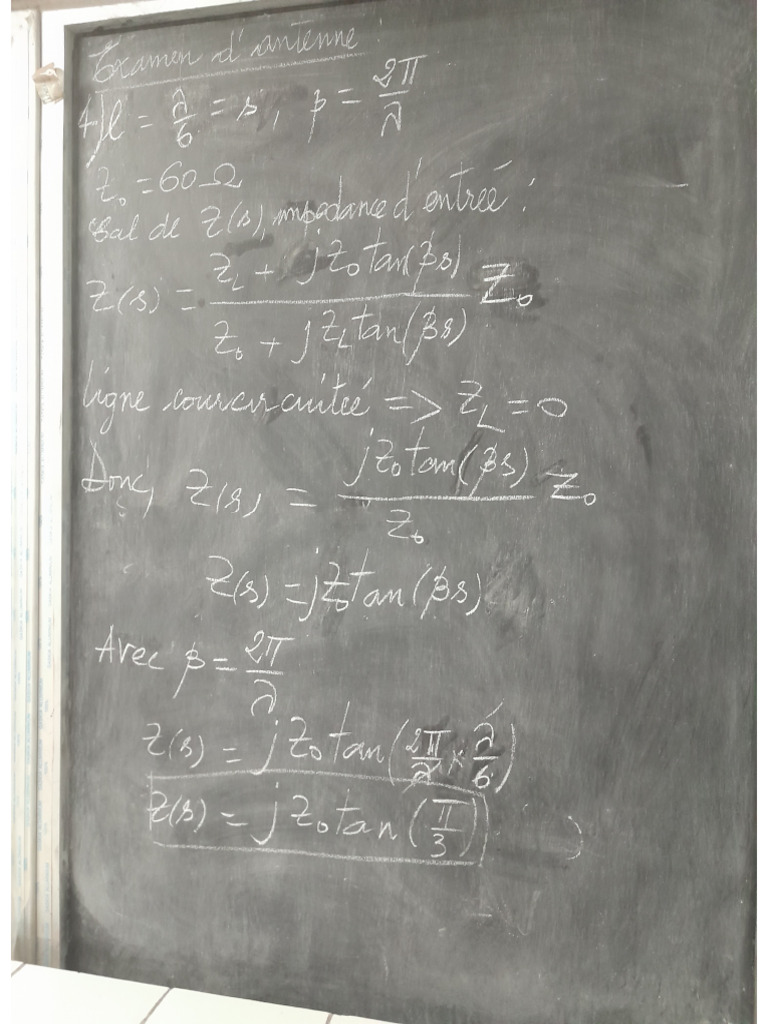 Examen d'antenne :
4) l = λ/6 = s, β = 2π/λ
Z₀ = 60 Ω
Cal de Z(s), impédance d'entrée :
Z(s) = (Z_L + jZ₀tan(βs))/(Z₀ + jZ_L tan(βs)) Z₀
ligne courcircuiteé => Z_L = 0
Donc, Z(s) = jZ₀tan(βs)/Z₀ Z₀
Z(s) = jZ₀tan(βs)
Avec β = 2π/λ
Z(s) = jZ₀tan(2π/λ × λ/6)
Z(s) = jZ₀tan(π/3)